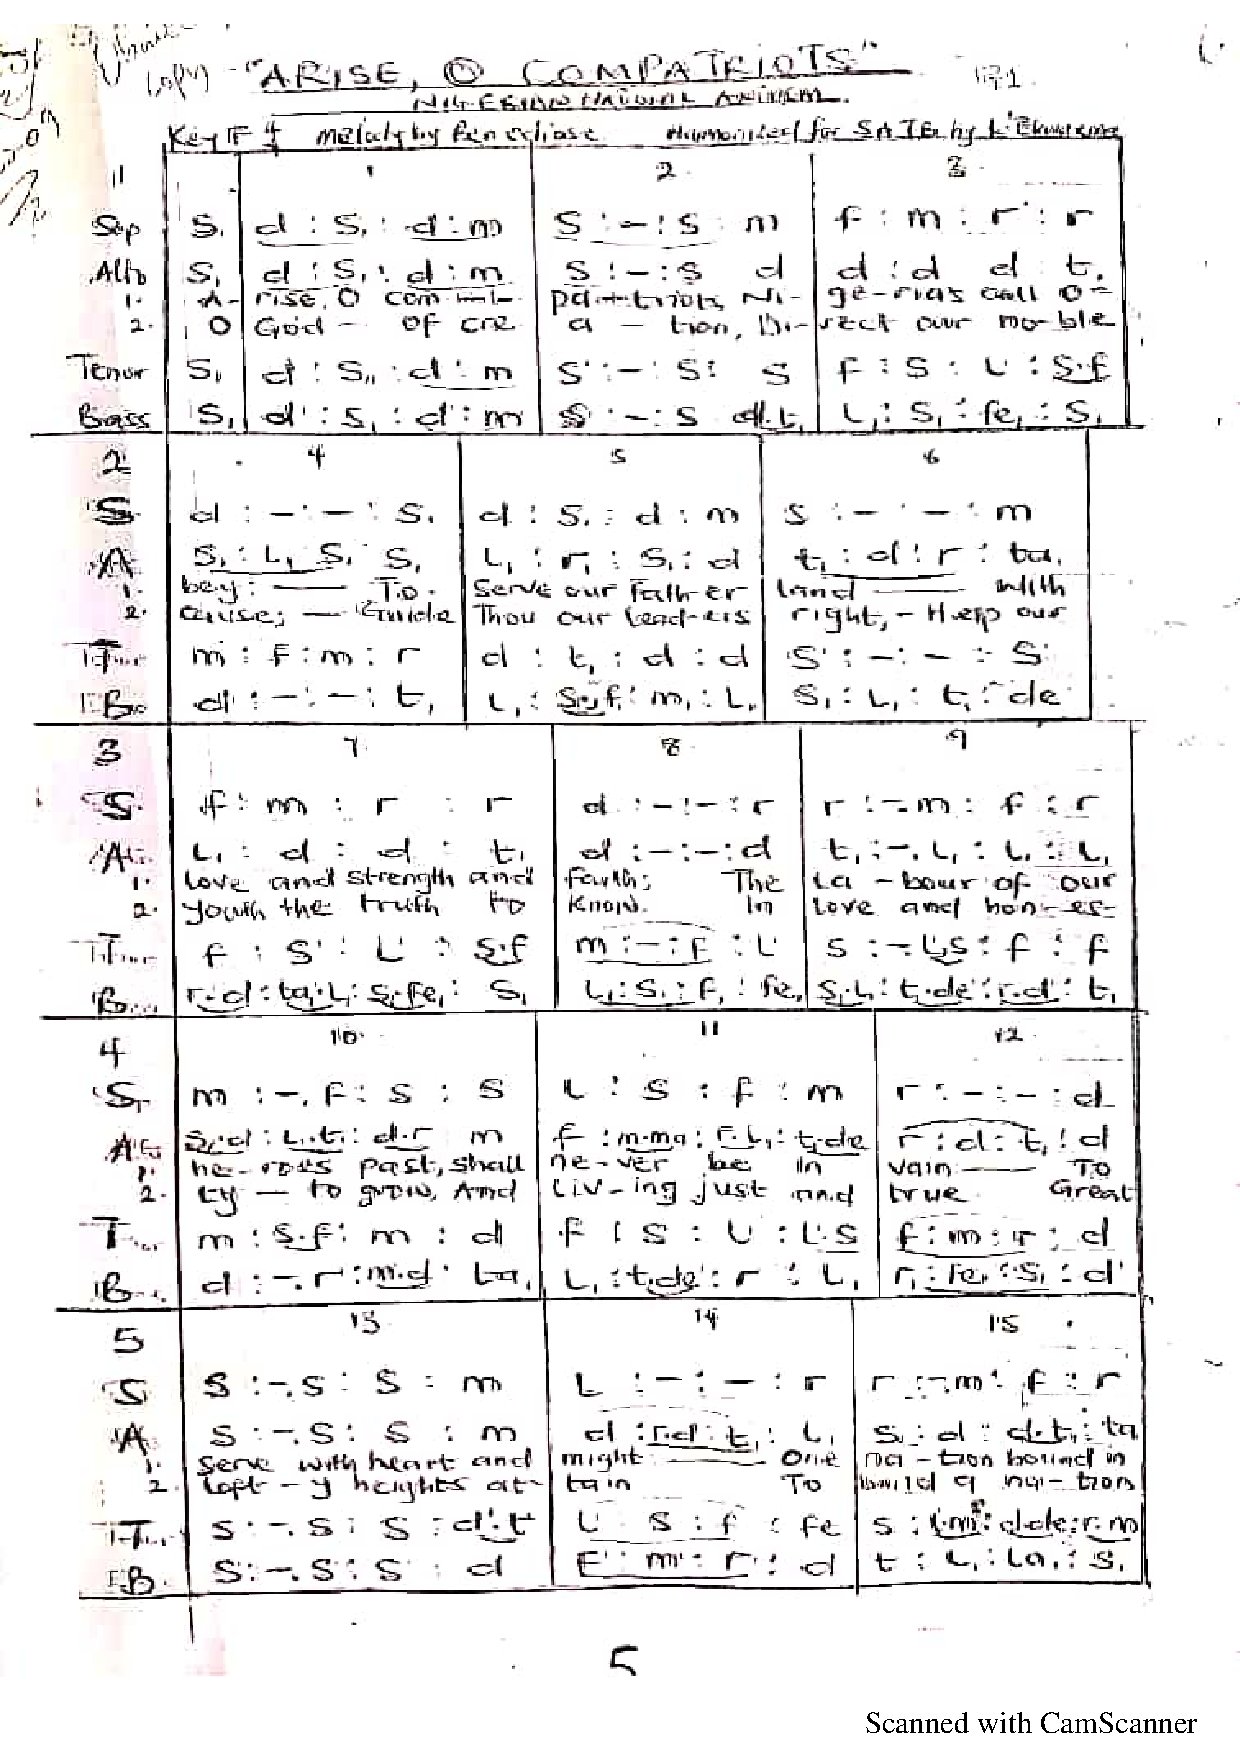 Copy - "ARISE, O COMPATRIOTS"
NIGERIAN NATIONAL ANTHEM.
Key F 4 melody by Ben Harmonised for SATB by
1 2 3
Sop S, d : S, : d : m S : - : S : m f : m : r : r
Alto S, d : S, : d : m S : - : S d d : d d t,
1. A- rise, O com- pa-triots, Ni- ge-rias call O-
2. O God - of cre a - tion, Di- rect our no-ble
Tenor S, d : S, : d : m S : - : S : S f : S : L : S.f
Bass S, d : S, : d : m S : - : S d.t, L, : S, : fe, : S,
2 4 5 6
S d : - : - : S, d : S, : d : m S : - : - : m
A S, : L, S, S, L, : r, : S, : d t, : d : r : ta,
1. bey: To Serve our Father land with
2. cause; - Guide Thou our lead-ers right, - Help our
T m : f : m : r d : t, : d : d S : - : - : S
B. d : - : - : t, L, : S,.f, : m, : L, S, : L, : t, : de
3 7 8 9
S. f : m : r : r d : - : - : r r : -.m : f : r
A L, : d : d : t, d : - : - : d t, : -. L, : L, : L,
1. love and strength and faith; The La - bour of our
2. youth the truth to know. In love and hon-es-
T f : S : L : S.f m : - : f : L S : -.L.S : f : f
B r.d : ta,.L, : S,.fe, : S, L, : S, : f, : fe, S,.L, : t,.de : r.d : t,
4 10 11 12
S, m : -. f : S : S L : S : f : m r : - : - : d
A S,.d : L,.t, : d.r m f : m.ma : r.L, : t,.de r : d : t, : d
1. he-roes past, shall ne-ver be in vain To
2. ty - to grow, And Liv-ing just and true Great
T m : S.f : m : d f : S : L : L.S f : m : r : d
B d : -.r : m.d ta, L, : t,.de : r : L, r, : fe, : S, : d
5 13 14 15
S S : -.S : S : m L : - : - : r r : -.m : f : r
A S : -.S : S : m d : r.d : t, : L, S, : d : d.t, : ta
1. Serve with heart and might One na-tion bound in
2. loft-y heights at- tain To build a na-tion
T S : -.S : S : d'.t L S : f : fe S : : d.de : r.m
B. S : -.S : S : d F : m : r : d t : L, : La, : S,
5
Scanned with CamScanner